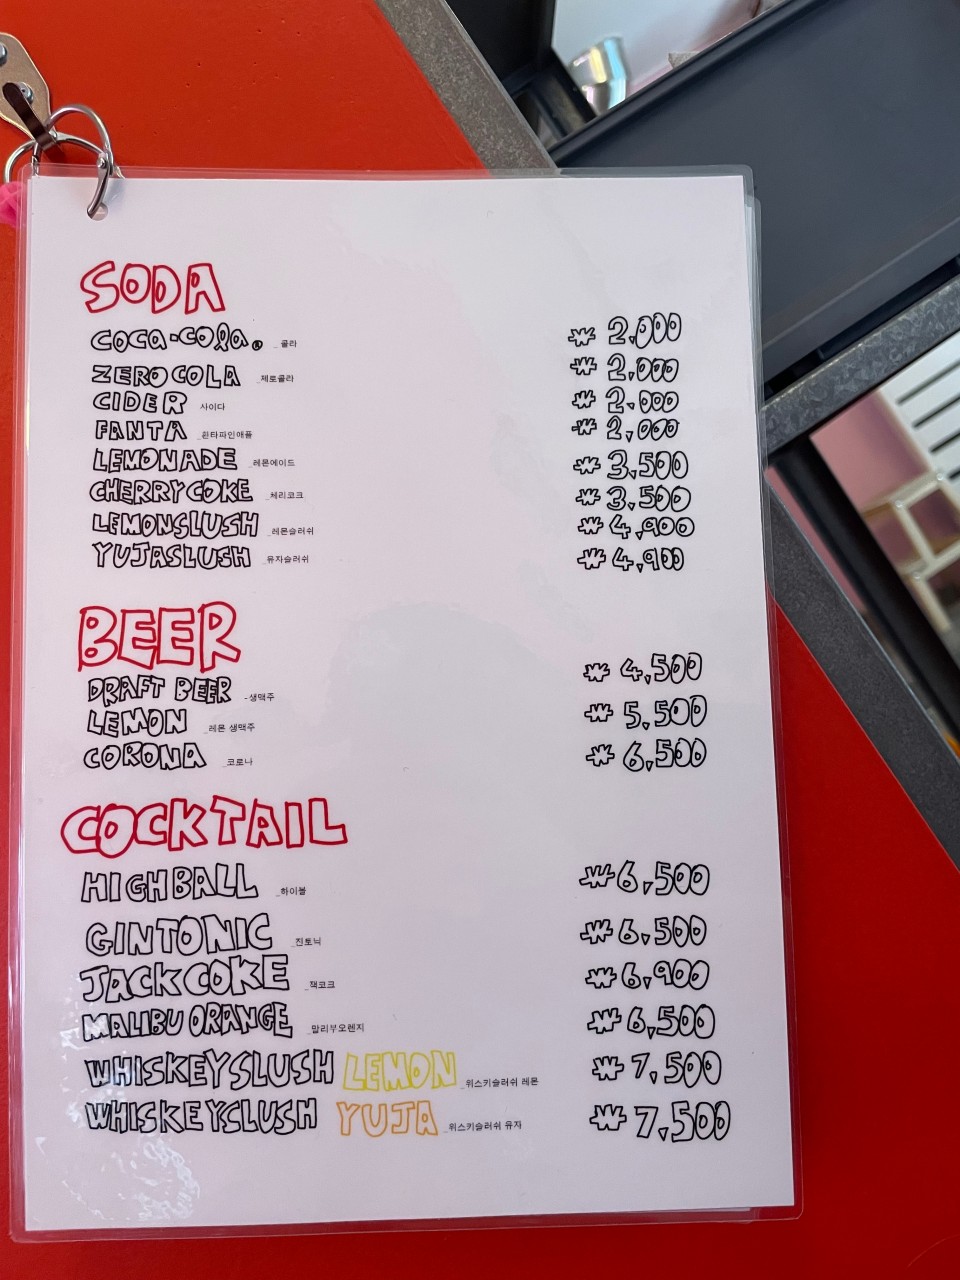 SODA
COCA-COLA® _콜라 ₩2,000
ZERO COLA _제로콜라 ₩2,000
CIDER 사이다 ₩2,000
FANTA _환타파인애플 ₩2,000
LEMONADE _레몬에이드 ₩3,500
CHERRYCOKE _체리코크 ₩3,500
LEMONSLUSH _레몬슬러쉬 ₩4,900
YUJASLUSH _유자슬러쉬 ₩4,900
BEER
DRAFT BEER -생맥주 ₩4,500
LEMON _레몬 생맥주 ₩5,500
CORONA _코로나 ₩6,500
COCKTAIL
HIGHBALL _하이볼 ₩6,500
GINTONIC _진토닉 ₩6,500
JACKCOKE _잭코크 ₩6,900
MALIBU ORANGE _말리부오렌지 ₩6,500
WHISKEYSLUSH LEMON _위스키슬러쉬 레몬 ₩7,500
WHISKEYSLUSH YUJA _위스키슬러쉬 유자 ₩7,500